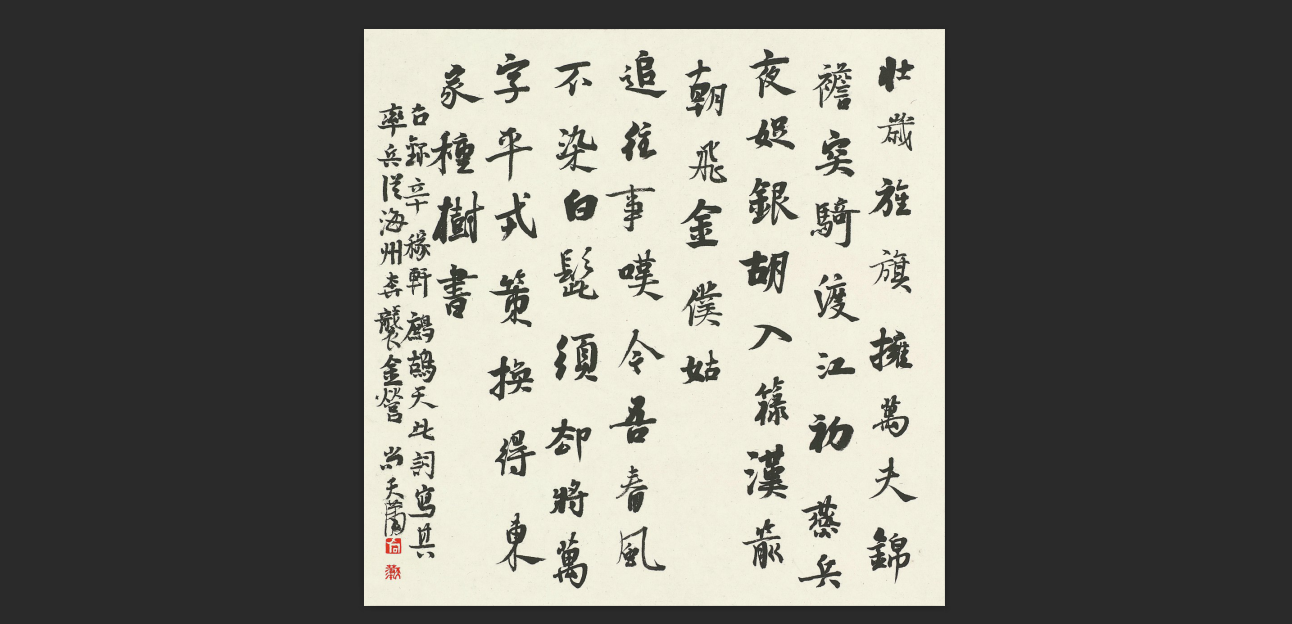 壯歲旌旗擁萬夫錦
襜突騎渡江初燕兵
夜娖銀胡入簶漢箭
朝飛金僕姑
追往事嘆今吾春風
不染白髭須卻將萬
字平戎策換得東
家種樹書
右錄辛稼軒鷓鴣天此詞寫其
率兵從海州奔襲金營 尚天